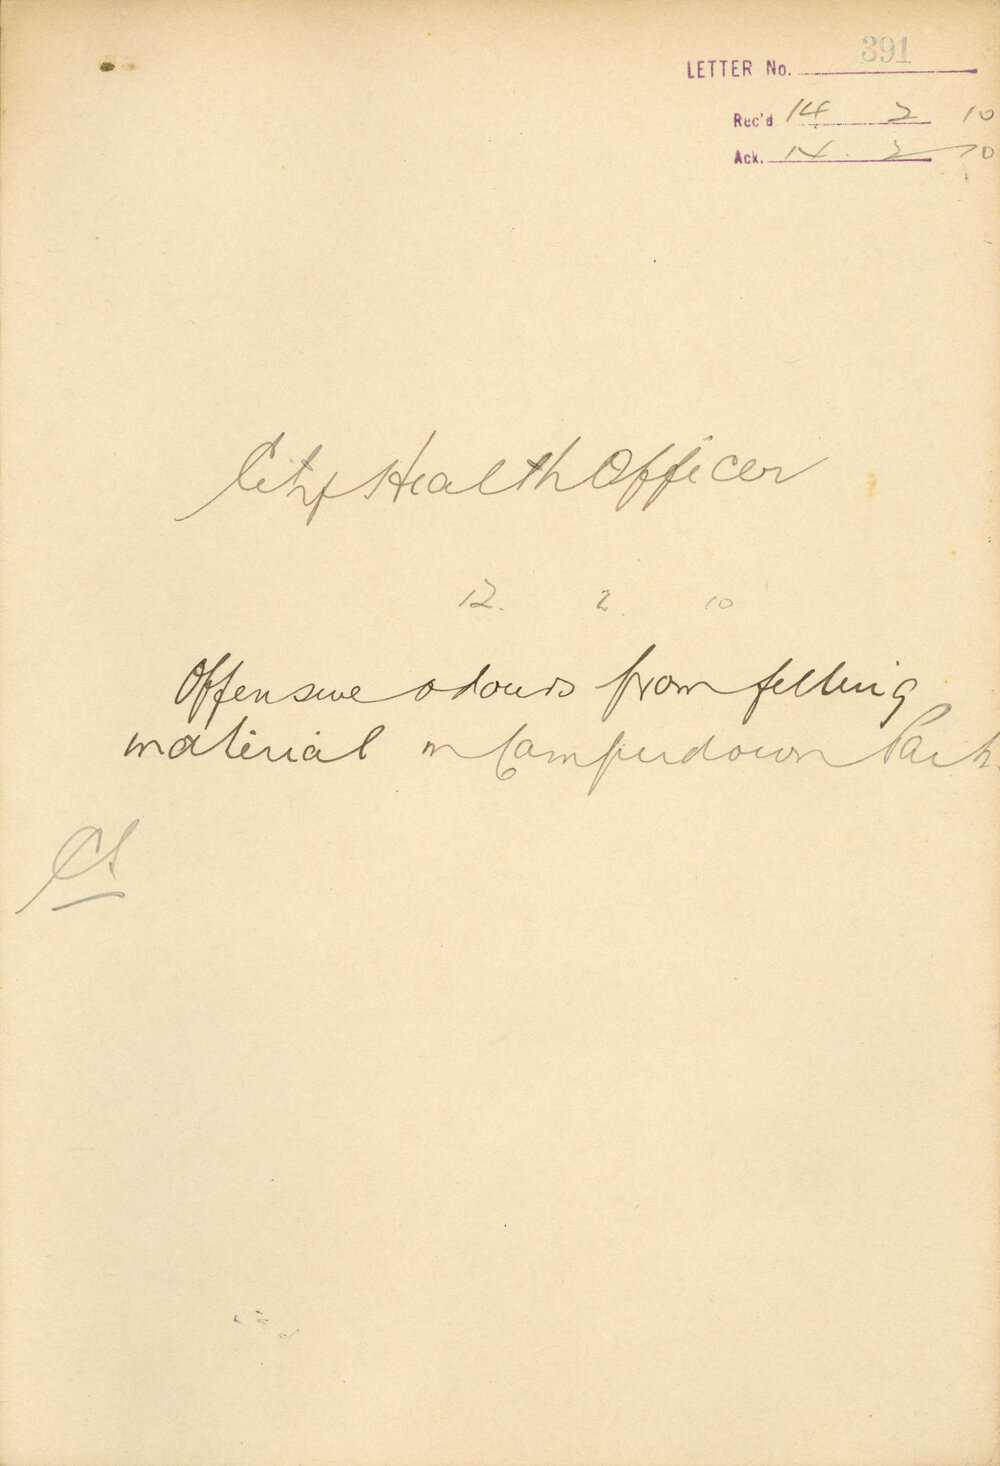 LETTER No. 391
Rec'd 14 2 10
Ack. 14. 2 10
City Health Officer
12. 2. 10
Offensive odours from filling
material in Camperdown Park.